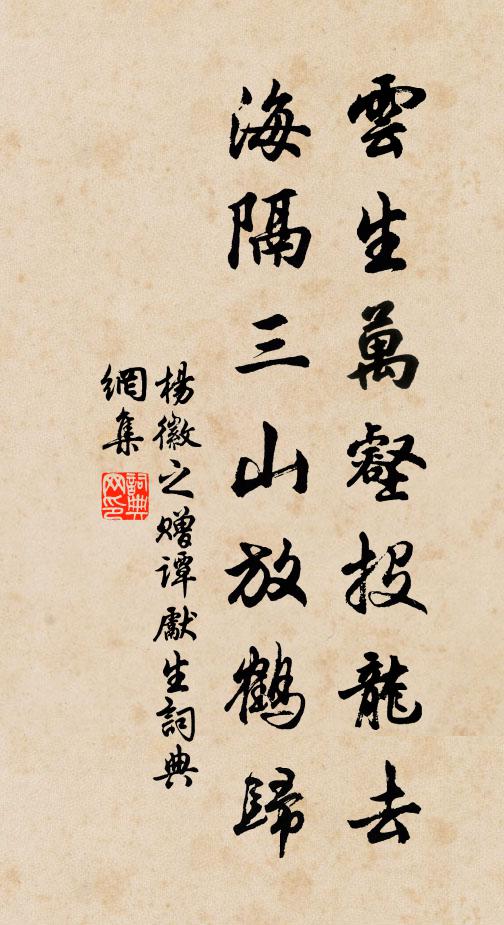 雲生萬壑投龍去
海隔三山放鶴歸
楊徽之贈譚獻生詞典
網集
詞典
网印